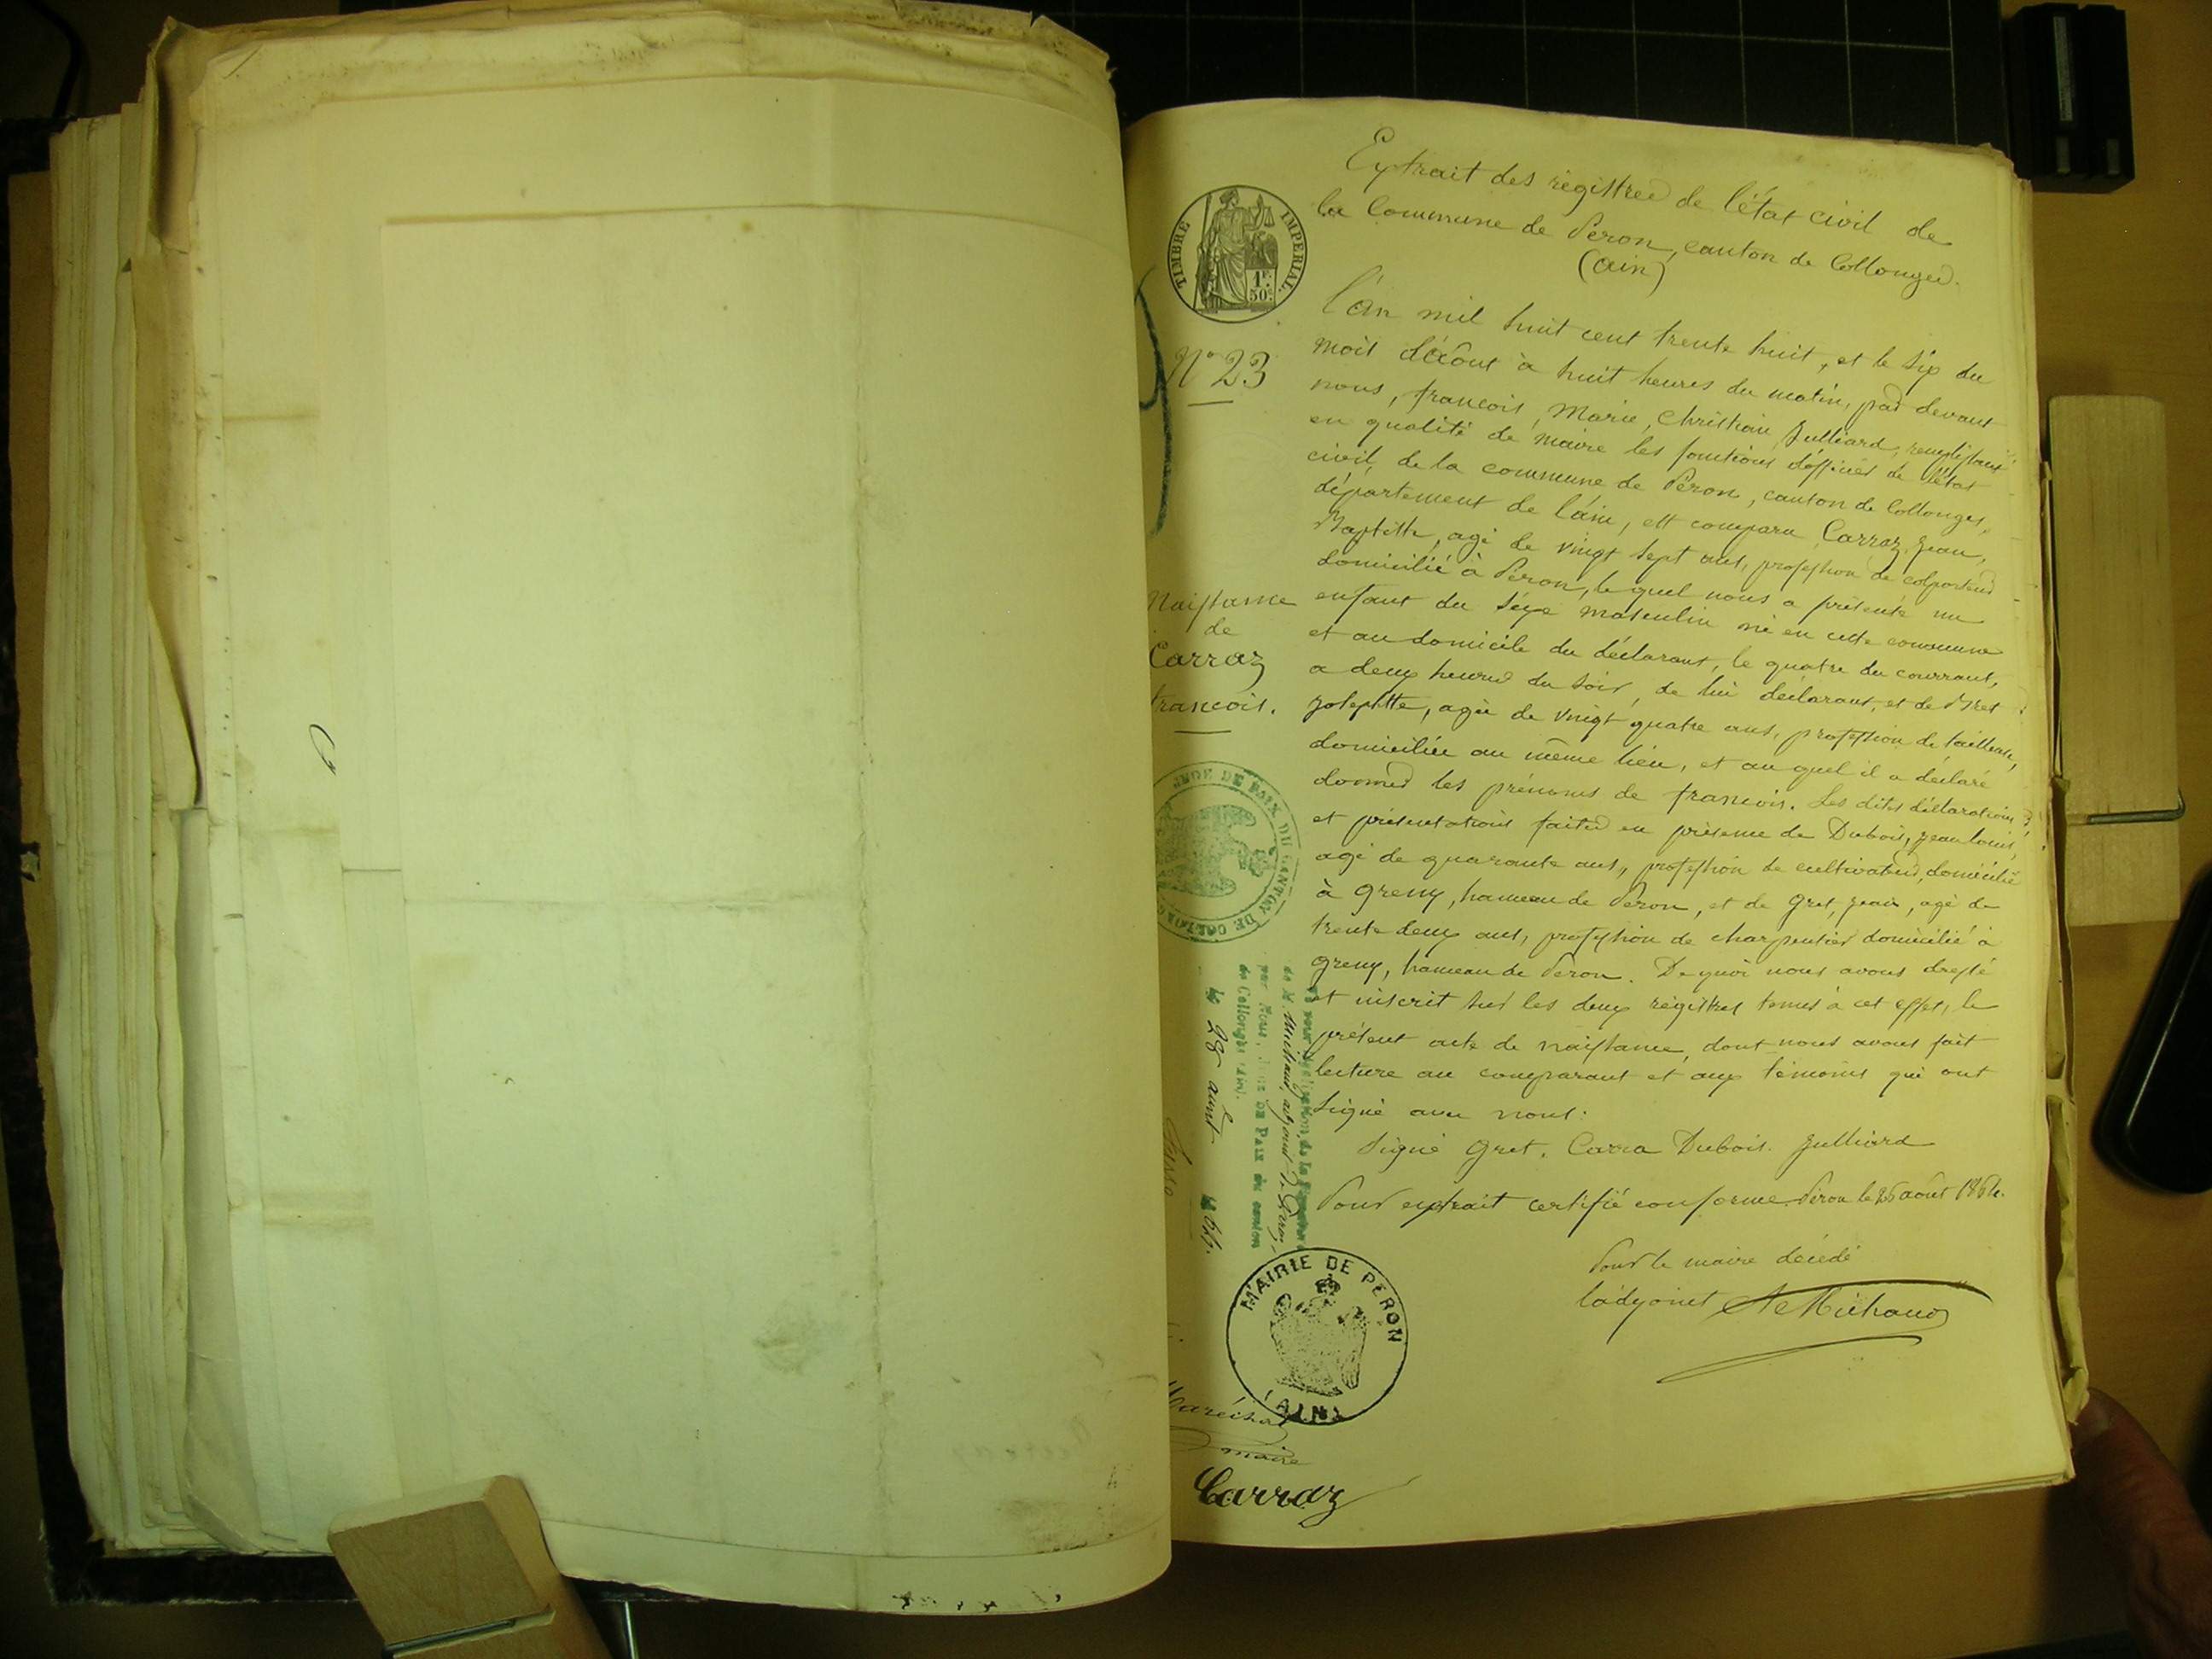 Extrait des régistres de l'état civil de
la Commune de Péron, canton de Collonges.
(ain)
TIMBRE IMPERIAL
1F.
50c.
N° 23
Naissance
de
Carraz
francois.
L'an mil huit cent trente huit, et le six du
mois d'Aout à huit heures du matin, par devant
nous, francois, Marie, Christian Julliard, remplissant
en qualité de maire les fonctions d'officier de l'état
civil, de la commune de Péron, canton de Collonges,
département de l'ain, est comparu Carraz, Jean,
Baptiste, agé de vingt sept ans, profession de colporteur
domicilié à Péron, le quel nous a présenté un
enfant du séxe masculin né en cette commune
et au domicile du déclarant, le quatre du courrant,
a deux heures du soir, de lui déclarant, et de Bret
josephtte, agée de vingt quatre ans, profession de tailleuse,
domiciliée au même lieu, et au quel il a déclaré
donner les prénoms de francois. Les dites déclarations
et présentations faites en présence de Dubois, jean louis,
agé de quarante ans, profession de cultivateur, domicilié
à Greny, hameau de Péron, et de Gret, jean, agé de
trente deux ans, profession de charpentier domicilié à
Greny, hameau de Péron. De quoi nous avons dressé
et inscrit sur les deux régistres tenus à cet effet, le
présent acte de naissance, dont nous avons fait
lecture au comparant et aux témoins qui ont
signé avec nous.
Signé Gret. Carra Dubois. Julliard
Pour extrait certifié conforme. Péron le 26 août 1864.
Pour le maire décédé
l'adjoint A Michaud
JUGE DE PAIX DU CANTON DE COLLONGES
de M. Michaud adjoint de Péron
par Nous, Juge DE PAIX du canton
de Collonges (Ain).
le 28 aout 1864.
MAIRIE DE PÉRON
(AIN)
Maréchal
maire
Carraz